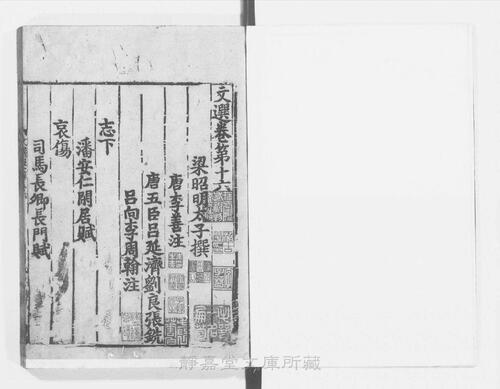 文選卷第十六
梁昭明太子撰
唐李善注
唐五臣呂延濟劉良張銑
呂向李周翰注
志下
潘安仁閑居賦
哀傷
司馬長卿長門賦
静嘉堂文庫所藏